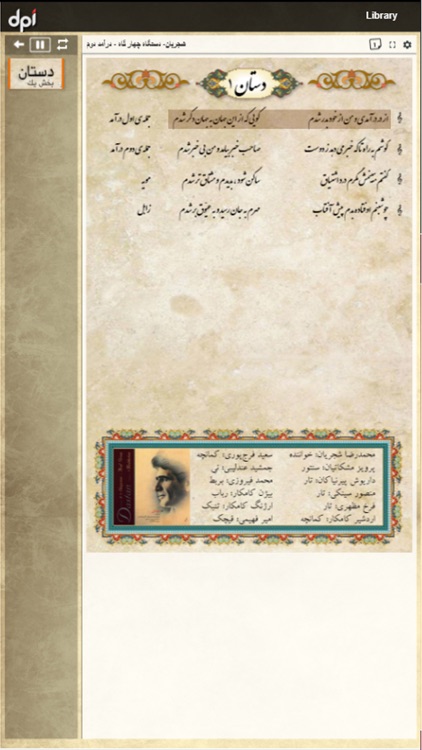 dpi
Library
شجریان- دستگاه چهار گاه - درآمد دوم
1
دستان
بخش یک
دستان ۱
از در درآمدی و من از خود به در شدم گویی که از این جهان به جهان دگر شدم جمله‌ی اول درآمد
گوشم به راه تا که خبر می‌دهد ز دوست صاحب خبر بیامد و من بی خبر شدم جمله‌ی دوم درآمد
گفتم ببینمش مگرم درد اشتیاق ساکن شود، بدیدم و مشتاق تر شدم مویه
چو شبنم اوفتاده بدم پیش آفتاب مهرم به جان رسید و به عیوق بر شدم زابل
محمدرضا شجریان: خواننده سعید فرج‌پوری: کمانچه
پرویز مشکاتیان: سنتور جمشید عندلیبی: نی
داریوش پیرنیاکان: تار محمد فیروزی: بربط
منصور سینکی: تار بیژن کامکار: رباب
فرخ مظهری: تار ارژنگ کامکار: تنبک
اردشیر کامکار: کمانچه امیر فهیمی: قیچک
Dastan